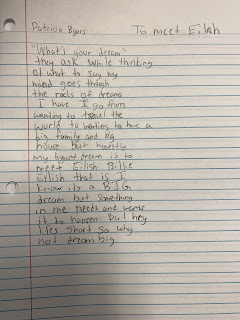 Patricia Byers To meet Eilish
"What's your dream"
they ask while thinking
of what to say my
mind goes through
the racks of dreams
I have I go from
wanting to travel the
world to wanting to have a
big family and big
house but honestly
my biggest dream is to
meet Eilish Billie
Eilish that is I
know its a BIG
dream but something
in me needs and wants
it to happen. But hey
lifes short so why
not dream big